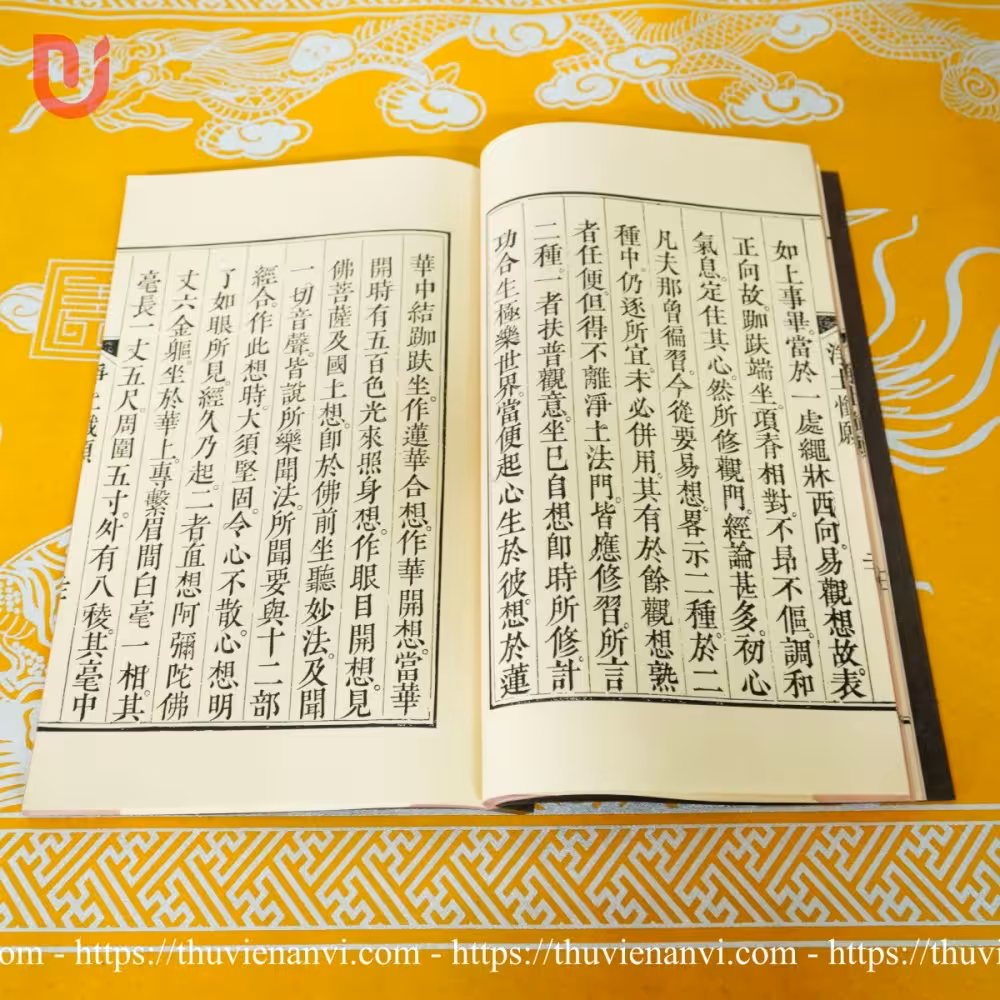 淨土懺願
如上事畢。當於一處繩牀西向。易觀想故。表
正向故。跏趺端坐。項脊相對。不昂不傴。調和
氣息。定住其心。然所修觀門。經論甚多。初心
凡夫那曾徧習。今從要易想。畧示二種。於二
種中仍逐所宜。未必併用。其有於餘觀想熟
者任便。但得不離淨土法門。皆應修習。所言
二種。一者扶普觀意。坐已自想。即時所修計
功合生極樂世界。當便起心生於彼想。於蓮
華中結跏趺坐。作蓮華合想。作華開想。當華
開時有五百色光來照身想。作眼目開想。見
佛菩薩及國土想。即於佛前坐聽妙法。及聞
一切音聲。皆說所樂聞法。所聞要與十二部
經合。作此想時。大須堅固。令心不散。心想明
了如眼所見。經久乃起。二者直想阿彌陀佛
丈六金軀。坐於華上。專繫眉間白毫一相。其
毫長一丈五尺。周圍五寸。外有八稜。其毫中
om - https://thuvienanvi.com - https://thuvienanvi.com - https://thuvi